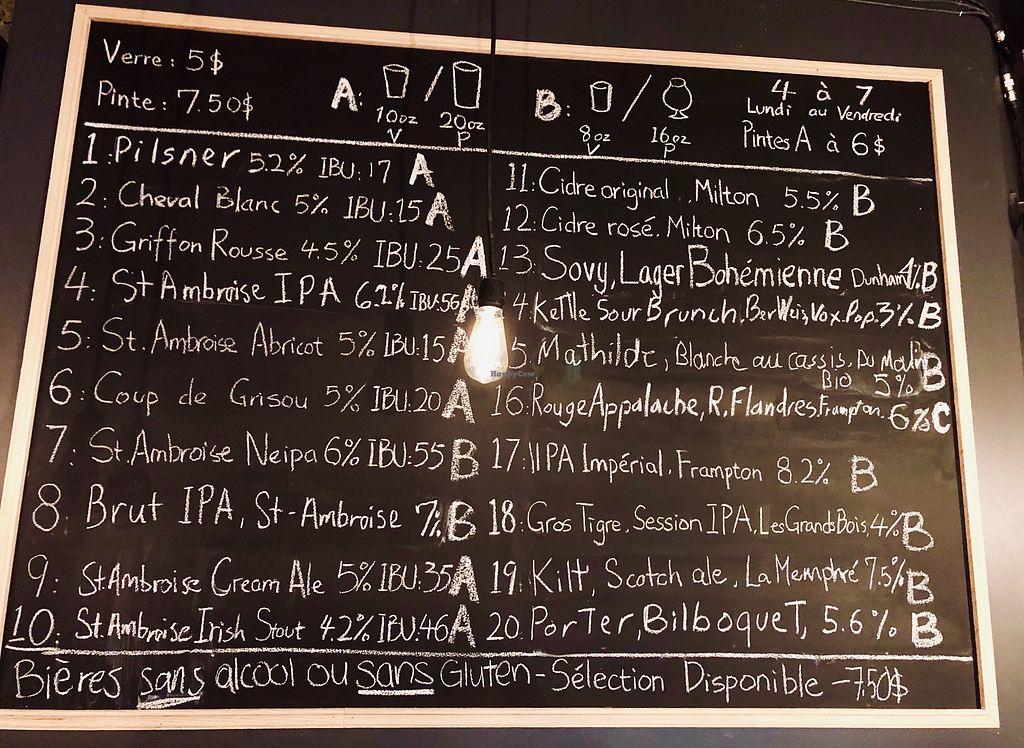 Verre : 5$
Pinte : 7.50$
A: 10oz V / 20oz P
B: 8oz V / 16oz P
4 à 7
Lundi au Vendredi
Pintes A à 6$
1: Pilsner 5.2% IBU:17 A
2: Cheval Blanc 5% IBU:15 A
3: Griffon Rousse 4.5% IBU:25 A
4: St Ambroise IPA 6.2% IBU:56 A
5: St. Ambroise Abricot 5% IBU:15 A
6: Coup de Grisou 5% IBU:20 A
7: St. Ambroise Neipa 6% IBU:55 B
8: Brut IPA, St-Ambroise 7% B
9: St Ambroise Cream Ale 5% IBU:35 A
10: St. Ambroise Irish Stout 4.2% IBU:46 A
11: Cidre original, Milton 5.5% B
12: Cidre rosé. Milton 6.5% B
13: Sovy, Lager Bohémienne Dunham B
4: Kettle Sour Brunch, BerWeis, Vox.Pop. 3% B
5. Mathilde, Blanche au cassis. Du Moulin
Bio 5% B
16: Rouge Appalache, R. Flandres, Frampton. 6% C
17: IPA Impérial. Frampton 8.2% B
18: Gros Tigre. Session IPA, Les Grands Bois, 4% B
19. Kilt, Scotch ale, La Memphré 7.5% B
20. PorTer, BilboqueT, 5.6% B
Bières sans alcool ou sans Gluten - Sélection Disponible - 7.50$
HappyCow